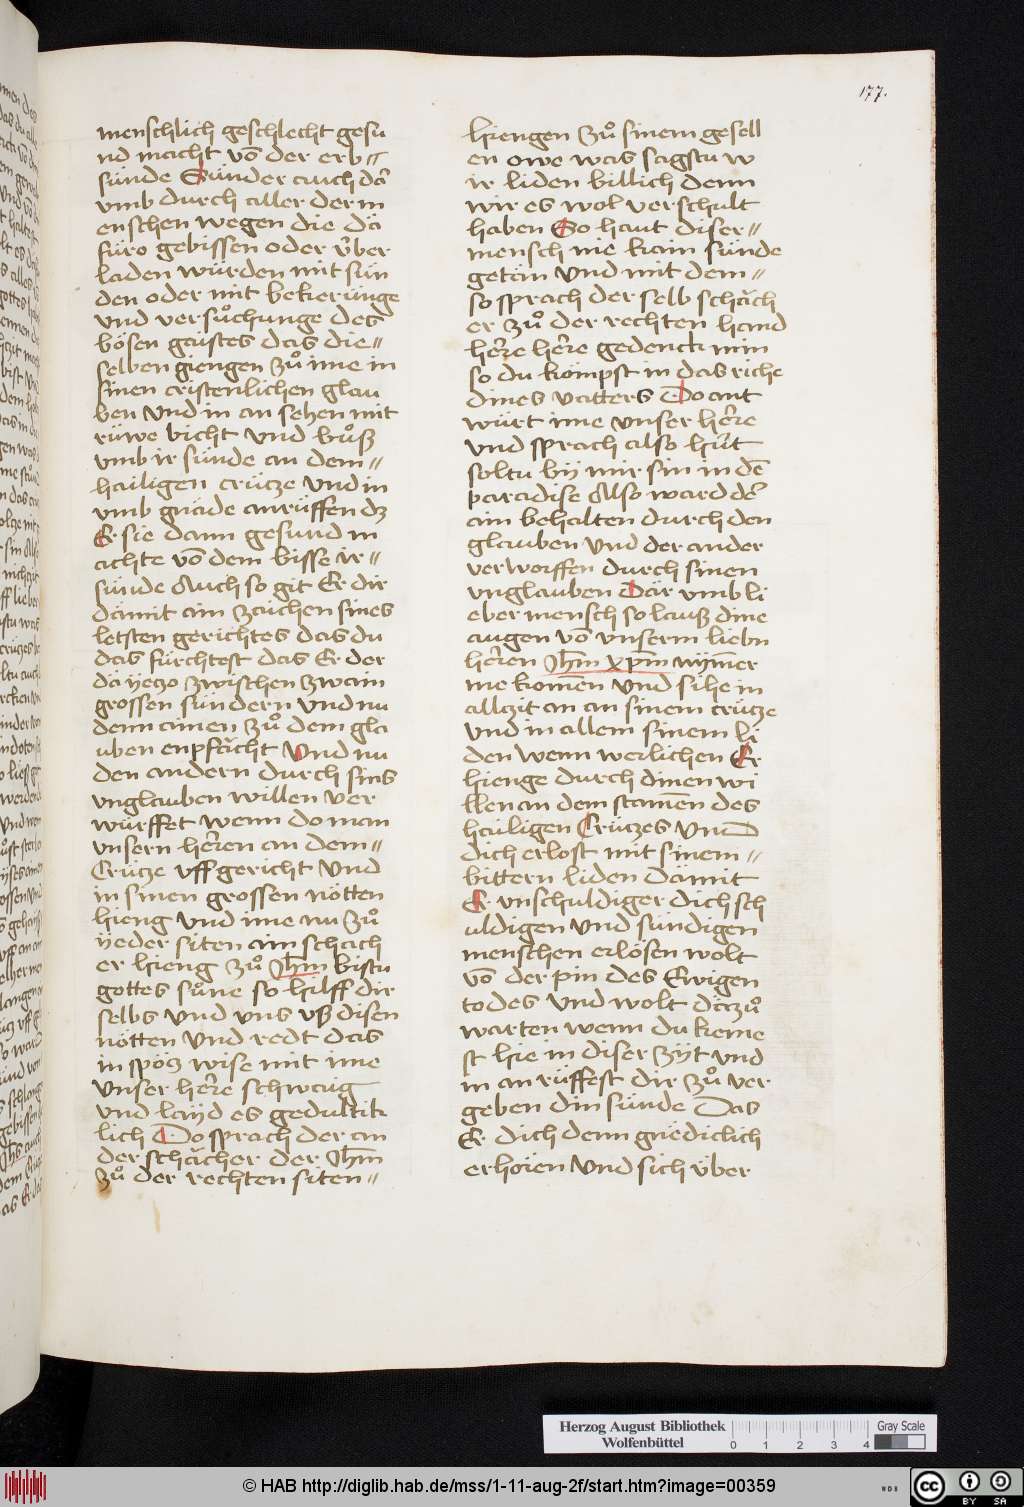 177.
menschlich geschlecht gesu
nd macht vō der erb⸗
sünde Sünder auch dǎ
vmb durch aller der m
enschen wegen die dä
füro gebissen oder v̈ber
laden würden mit sün
den oder mit bekerünge
vnd versuͦchunge des
bösen gaistes das die⸗
selben giengen zuͦ ime in
sinen cristenlichen glau
ben vnd in an sehen mit
rüwe bicht vnd buͦß
vmb ir sünde an dem⸗
hailigen crütze vnd in
vmb gnäde anrüffen dz
Er sie dann gesund m
achte vō dem bisse ir⸗
sünde Auch so git Er dir
dämit ain zaichen sines
letsten gerichtes das du
das fürchtest das Er der
dä yetzo zwischen zwain
grossen sündern vnd nu
denn ainen zuͦ dem gla
uben enpfächt Vnd nu
den andern durch sins
vnglauben willen ver
würffet wenn do man
vnsern herren an dem⸗
Crütze vff gericht vnd
in sinen grossen nötten
hieng vnd ime nu zuͦ
ÿeder siten ain schäch
er hieng zuͦ Jhm̄ bistu
gottes suͦne so hilff dir
selbs vnd vns vß disen
nötten vnd redt das
in spötz wise mit ime
vnser here schwaig
vnd layd es gedultik
lich Do sprach der an
der schächer der Jhm̄
zuͦ der rechten siten⸗
hiengen zuͦ sinem gesell
en owe was sagstu w
ir liden billich denn
wir es wol verschult
haben So haut diser⸗
mensch nie kain sünde
getän vnd mit dem⸗
so sprach der selb schäch
er zuͦ der rechten hand
here here gedenck min
so du kömpst in das riche
dines vatters Do ant
würt ime vnser here
vnd sprach also hüt
soltu bÿ mir sin in dē
paradise Also ward dǒ
ain behalten durch den
glauben vnd der ander
verworffen durch sinen
vnglauben Där vmb li
eber mensch so lauß dine
augen vō vnserm liebn
herren Jhm̄ xpm̄ nÿmēr
me komēn vnd sihe in
allzit an an sinem crütze
vnd in allem sinem li
den wenn werlichen Er
hienge durch dinen wi
llen an dem stamēn des
hailigen Crützes vnd
dich erlost mit sinem⸗
bittern liden Dämit
Er vnschuldiger dich sch
uldigen vnd sündigen
menschen erlösen wolt
vō der pin des Ewigen
todes vnd wolt däzuͦ
warten wenn du keme
st hie in diser zÿt vnd
in an rüffest dir zuͦ ver
geben din sünde Das
Er dich denn gnediclich
erhören vnd sich v̈ber
Herzog August Bibliothek
Wolfenbüttel
0 1 2 3 4
Gray Scale
© HAB http://diglib.hab.de/mss/1-11-aug-2f/start.htm?image=00359
WDB
cc BY SA